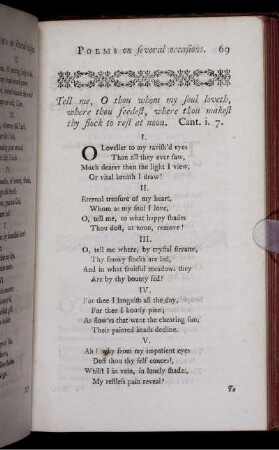 POEMS on ſeveral occaſions. 69
Tell me, O thou whom my ſoul loveth,
where thou feedeſt, where thou makeſt
thy flock to reſt at noon. Cant. i. 7.
I.
O Lovelier to my raviſh'd eyes
Than all they ever ſaw,
Much dearer than the light I view,
Or vital breath I draw!
II.
Eternal treaſure of my heart,
Whom as my ſoul I love,
O, tell me, to what happy ſhades
Thou doſt, at noon, remove!
III.
O, tell me where, by cryſtal ſtreams,
Thy ſnowy flocks are led,
And in what fruitful meadows they
Are by thy bounty fed?
IV.
For thee I languiſh all the day,
For thee I hourly pine;
As flow'rs that want the chearing ſun,
Their painted heads decline.
V.
Ah! why from my impatient eyes
Doſt thou thy ſelf conceal,
Whilſt I in vain, in lonely ſhades,
My reſtleſs pain reveal?
To